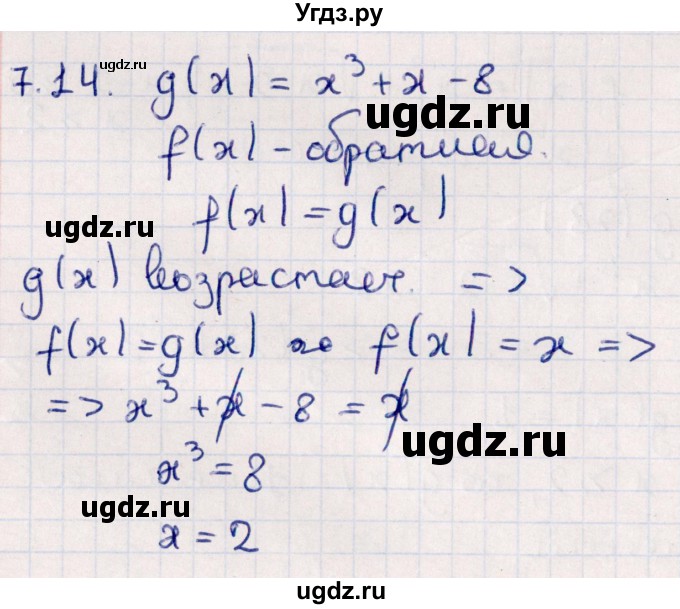 Угдз.ру
ugdz.ru
7.14. g(x) = x³ + x - 8
ugdz.ru
f(x) - обратная.
ugdz.ru
f(x) = g(x)
g(x) возрастает. =>
f(x) = g(x) f(x) = x =>
=> x³ + x - 8 = x
ugdz.ru
x³ = 8
ugdz.ru
x = 2
ugdz.ru